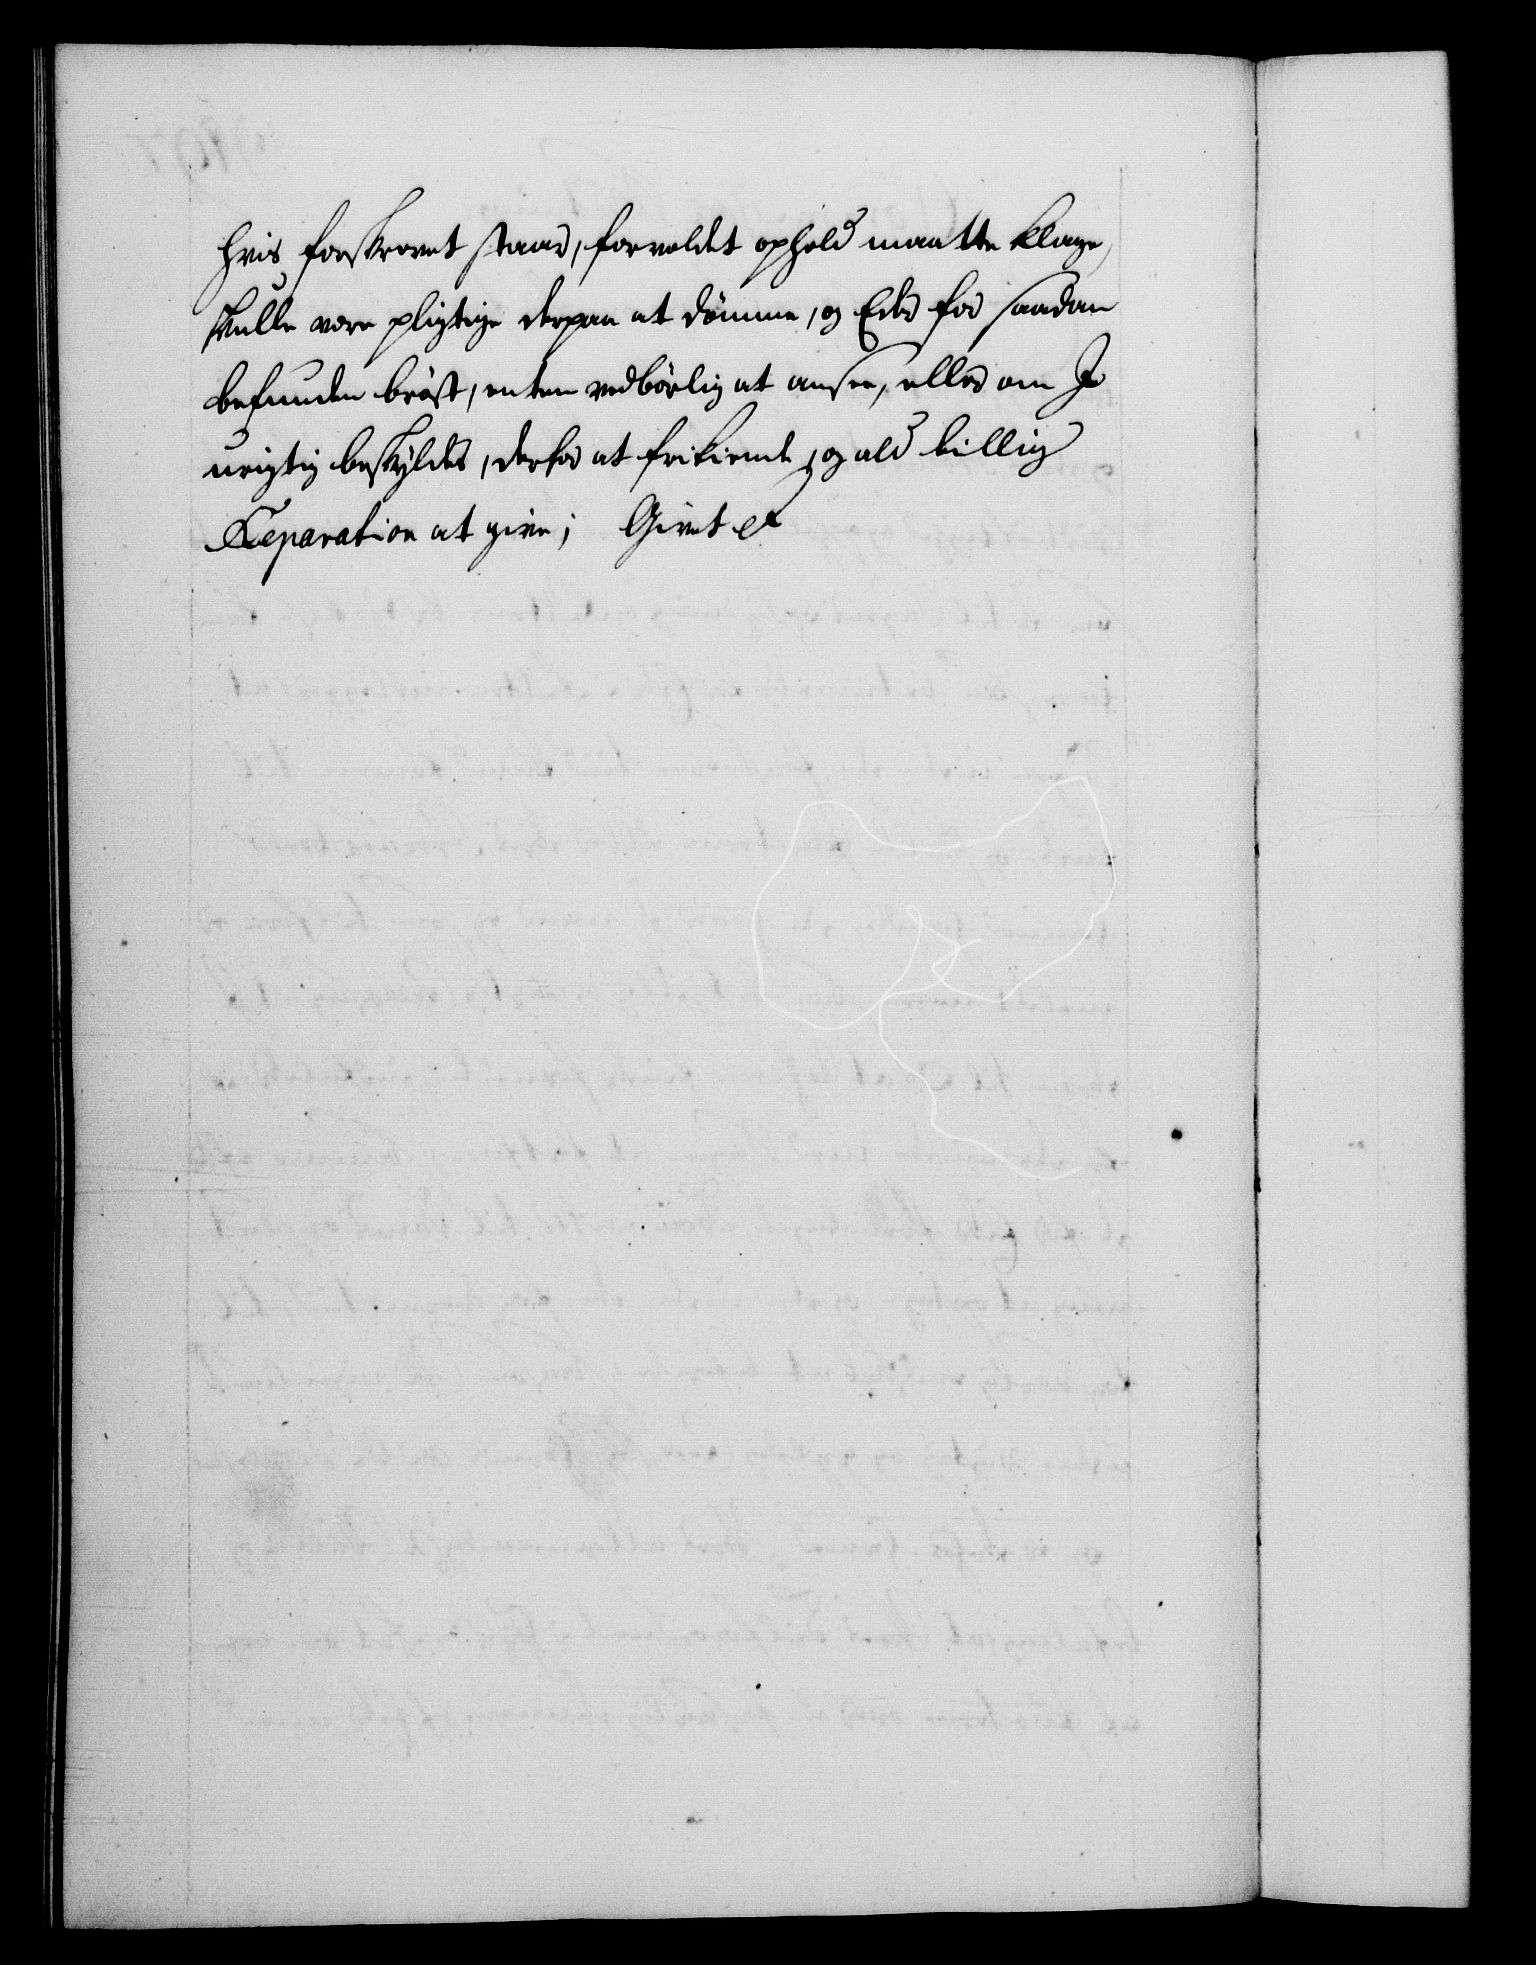 hvis forskrevet staar, forvoldet ophold maatte klage,
skulle være pligtige derpaa at dömme, og Eder for saadan
befunden bröst, enten vedbörlig at ansee, eller om I
urigtig beskyldes, derfor at frikiende, og ald billig
Reparation at give; Givet &c